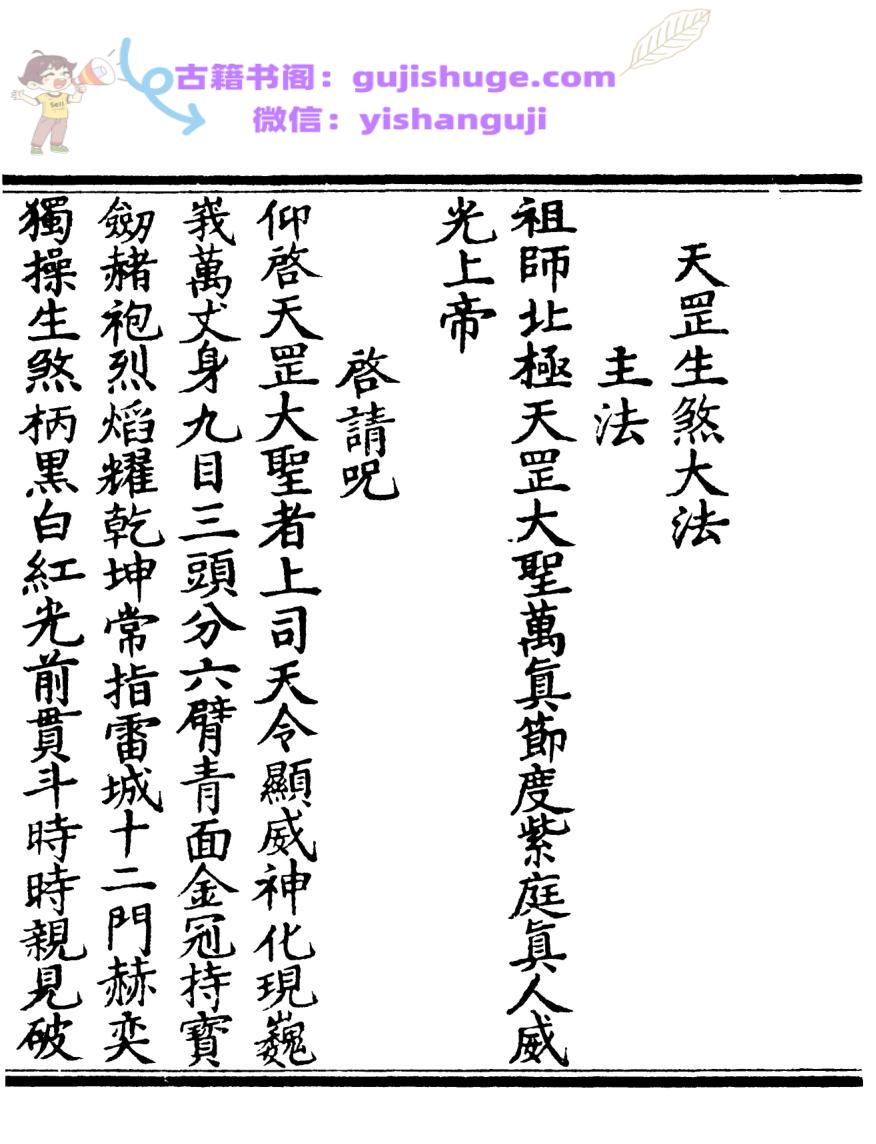 古籍书阁：gujishuge.com
微信：yishanguji
Sell
天罡生煞大法
主法
祖師北極天罡大聖萬眞節度紫庭眞人威
光上帝
啓請呪
仰啓天罡大聖者上司天令顯威神化現巍
峩萬丈身九目三頭分六臂青面金冠持寶
劒赭袍烈熖耀乾坤常指雷城十二門赫奕
獨操生煞柄黒白紅光前貫斗時時親見破